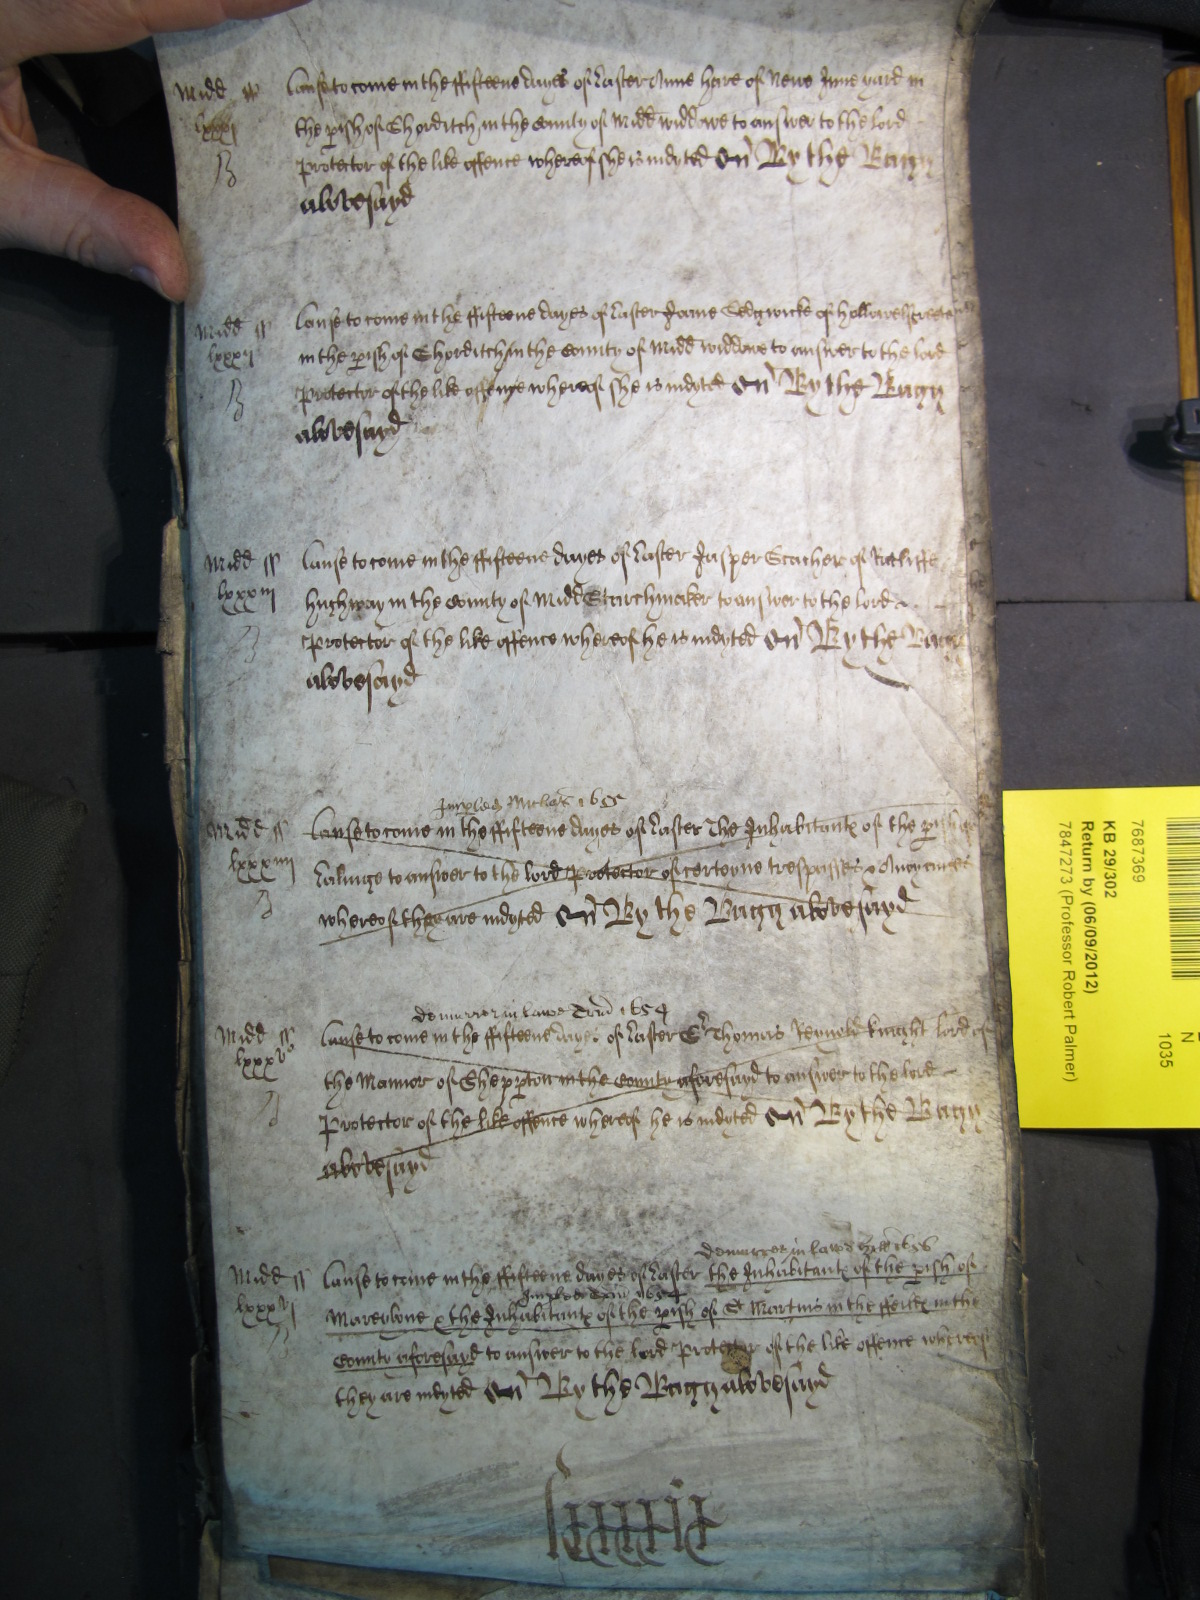 Midd ss Cause to come in the fifteene dayes of Easter Anne Hare of Newe Inne yard in
lxxxi the pish of Shorditch in the County of Midd widdowe to answer to the lord
Protector of the like offence whereof she is indyted By the Bagg
abovesayd
Midd ss Cause to come in the fifteene dayes of Easter Jane Sedgwicke of
lxxxii in the pish of Shorditch in the County of Midd widdowe to answer to the lord
Protector of the like offence whereof she is indyted By the Bagg
abovesayd
Midd ss Cause to come in the fifteene dayes of Easter Jasper of Ratcliffe
lxxxiii highway in the County of Midd Starchmaker to answer to the lord
Protector of the like offence whereof he is indyted By the Bagg
abovesayd
Michas 1655
Midd ss Cause to come in the fifteene dayes of Easter The Inhabitants of the pish of
lxxxiiii Ealinge to answer to the lord Protector of certeyne trespasses &
whereof they are indyted By the Bagg abovesayd
demurrer in lawe Trin 1654
Midd ss Cause to come in the fifteene dayes of Easter Sr Thomas Reynold knight lord of
lxxxv the Mannor of Shepperton in the County aforesayd to answer to the lord
Protector of the like offence whereof he is indyted By the Bagg
abovesayd
demurrer in lawe Hill 1656
Midd ss Cause to come in the fifteene dayes of Easter the Inhabitants of the pish of
Trin 1654
lxxxvi Marybone & the Inhabitants of the pish of St Martins in the ffeilds in the
County aforesayd to answer to the lord Protector of the like offence whereof
they are indyted By the Bagg abovesayd
7687369
KB 29/302
Return by (06/09/2012)
7847273 (Professor Robert Palmer)
N
1035